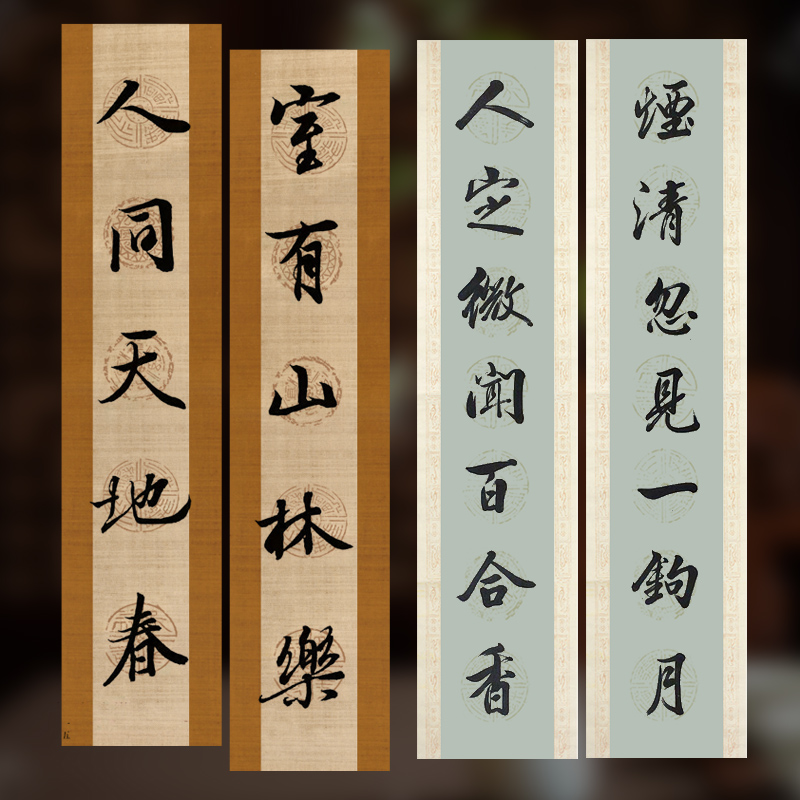 煙清忽見一鉤月
人定微聞百合香
室有山林樂
人同天地春